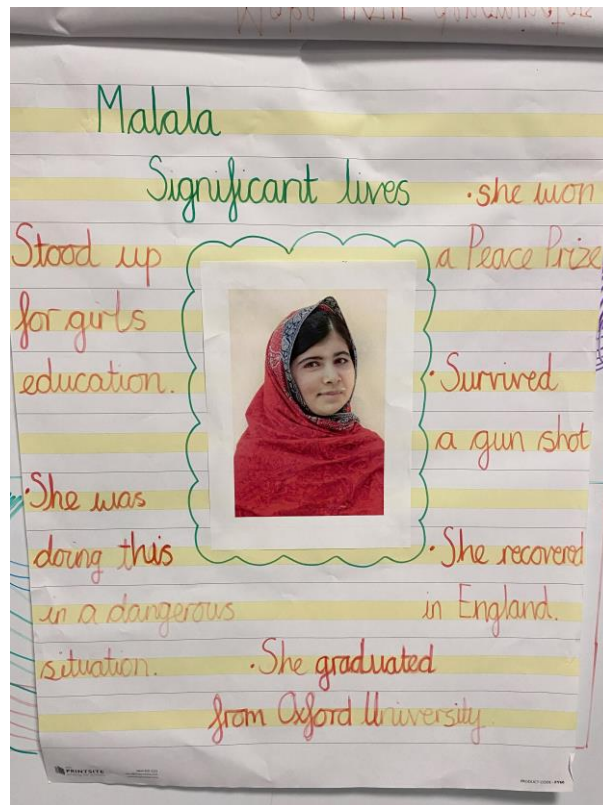 Malala
Significant lives
Stood up
for girls
education.
·She was
doing this
in a dangerous
situation.
·she won
a Peace Prize
·Survived
a gun shot
·She recovered
in England.
·She graduated
from Oxford University.
PRINTSITE